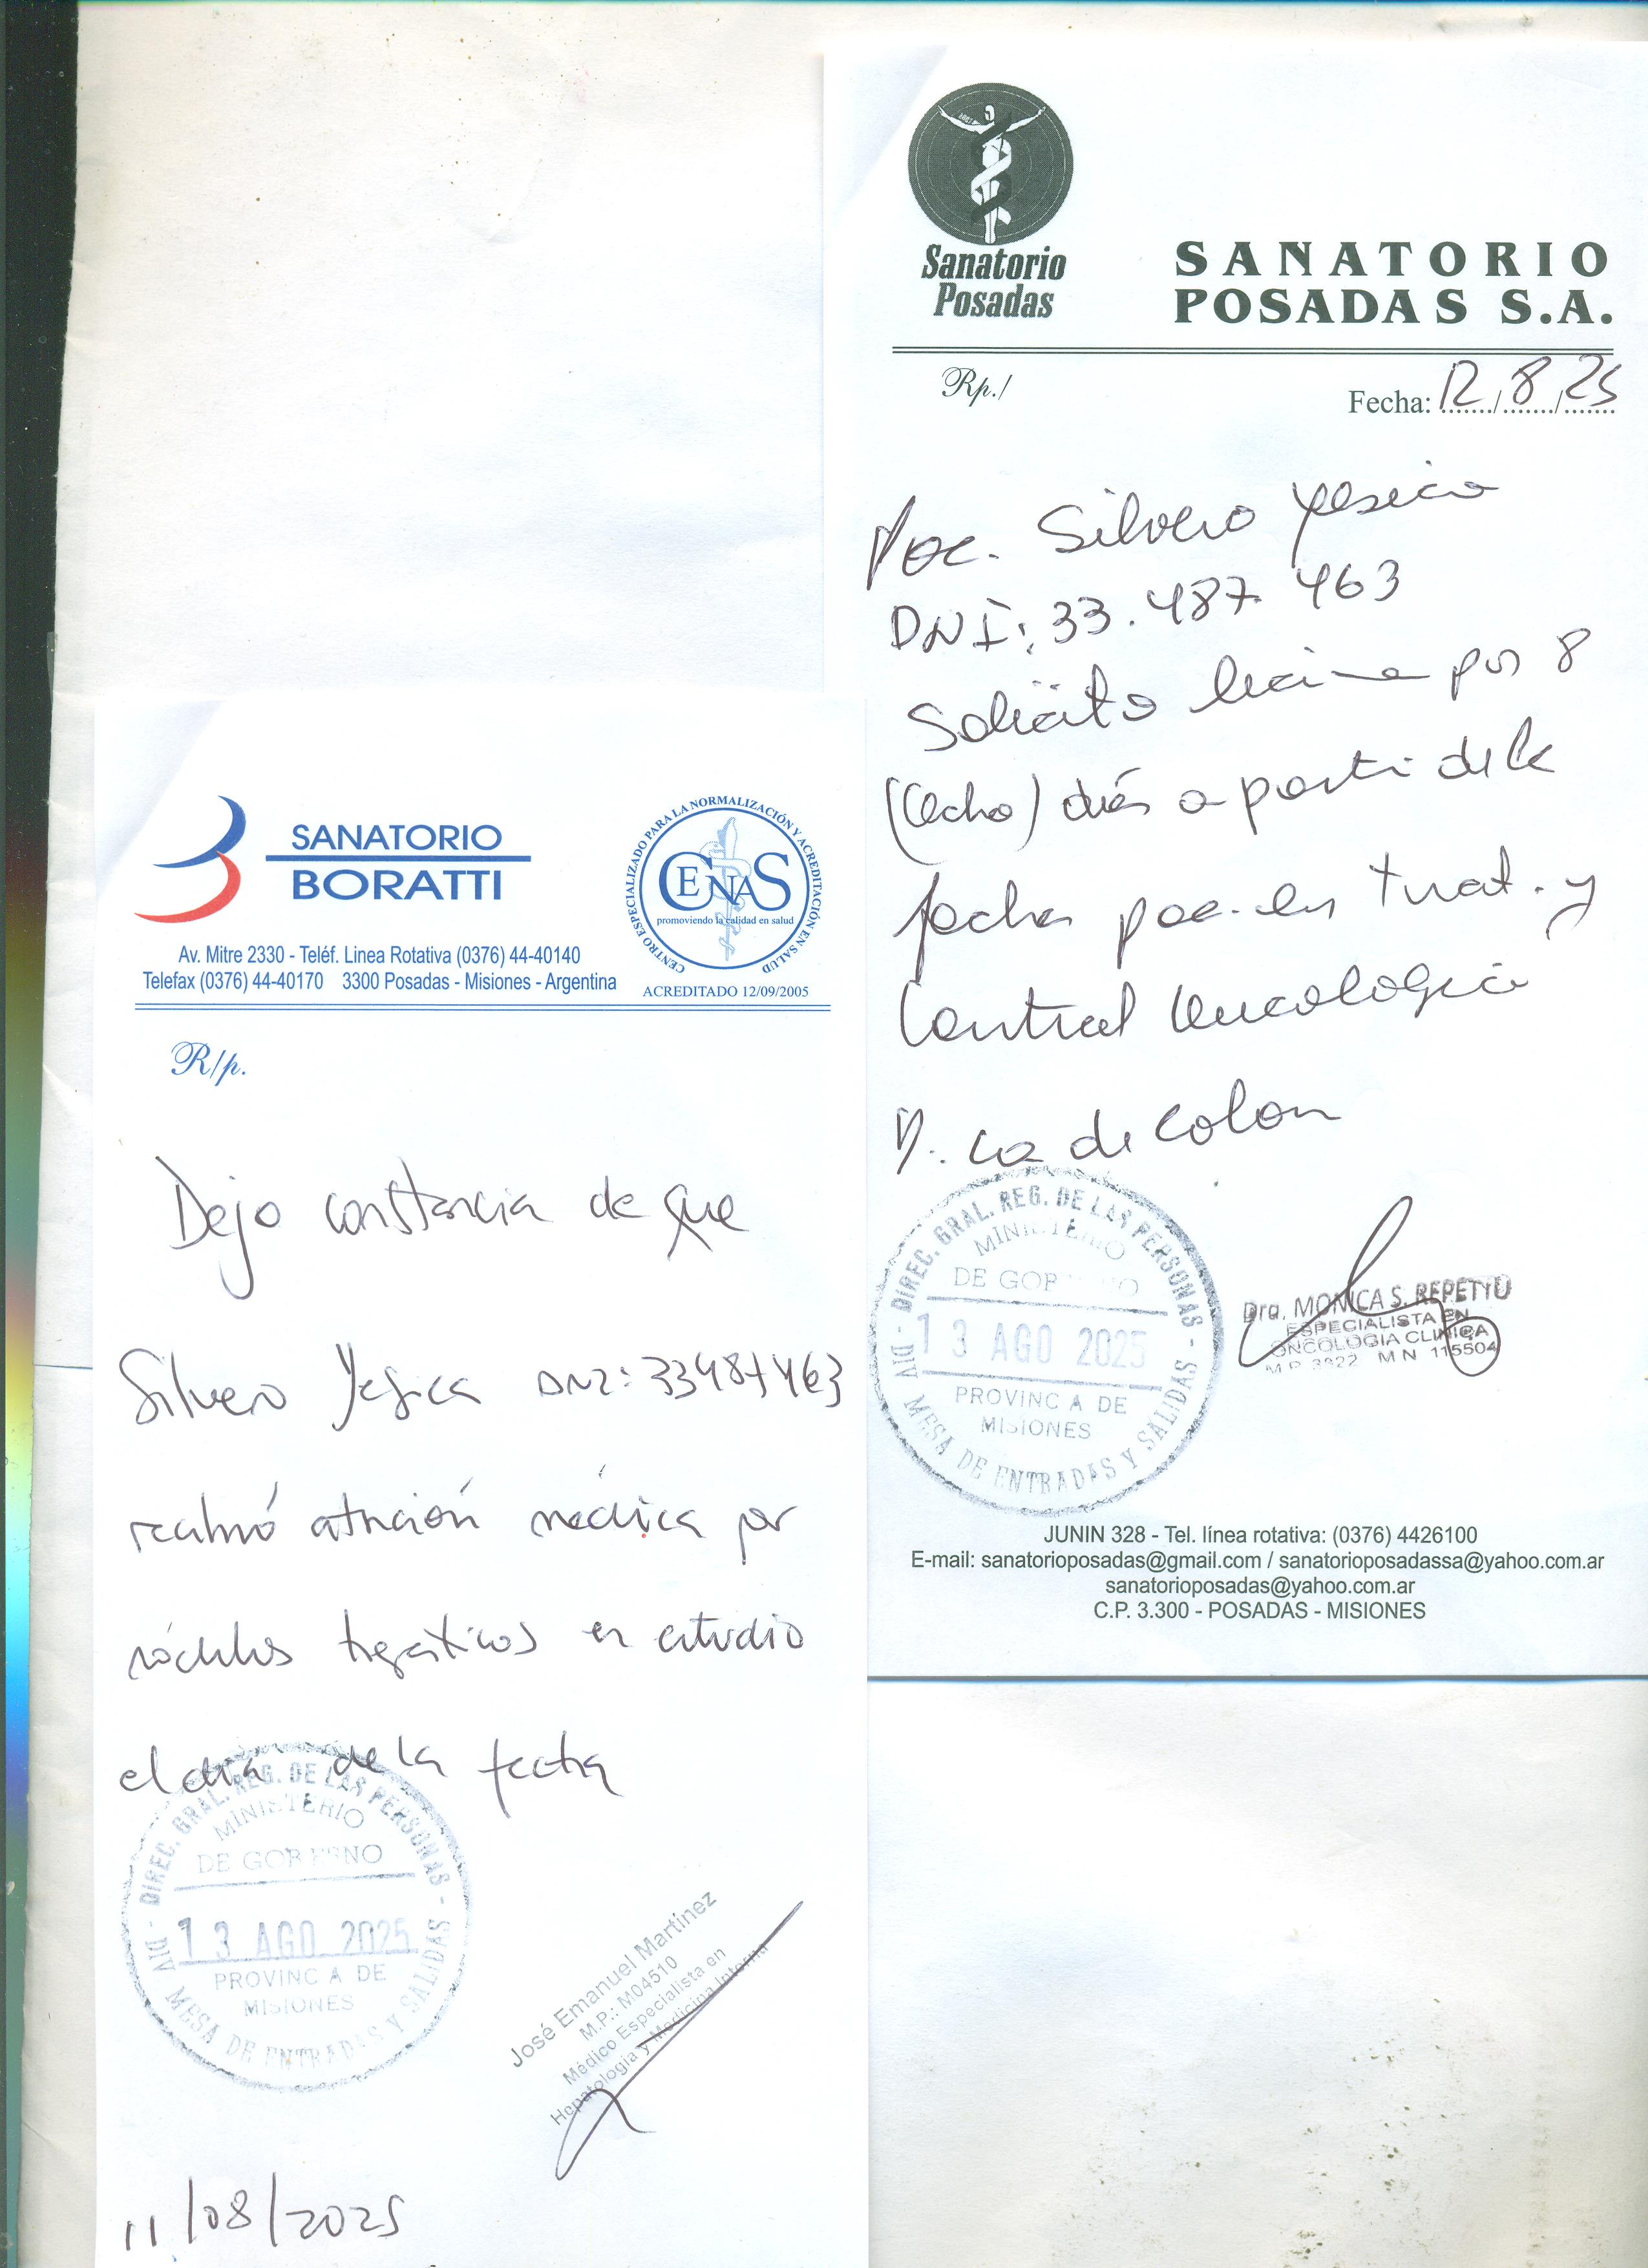 Sanatorio
Posadas
SANATORIO
POSADAS S.A.
Rp./
Fecha: 12/8/25
Pac. Silvero Yesica
DNI: 33.487.463
Solicito licencia por 8
(Ocho) días a partir de la
fecha pac. en trat. y
Control Oncologico
D: ca de colon
DIREC. GRAL. REG. DE LAS PERSONAS
MINISTERIO
DE GOBIERNO
13 AGO 2025
PROVINCIA DE
MISIONES
DIV MESA DE ENTRADAS Y SALIDAS
Dra. MONICA S. REPETTO
ESPECIALISTA EN
ONCOLOGIA CLINICA
M.P. 3322 M N 115504
JUNIN 328 - Tel. línea rotativa: (0376) 4426100
E-mail: sanatorioposadas@gmail.com / sanatorioposadassa@yahoo.com.ar
sanatorioposadas@yahoo.com.ar
C.P. 3.300 - POSADAS - MISIONES
SANATORIO
BORATTI
CENTRO ESPECIALIZADO PARA LA NORMALIZACIÓN Y ACREDITACIÓN EN SALUD
CENAS
promoviendo la calidad en salud
ACREDITADO 12/09/2005
Av. Mitre 2330 - Teléf. Linea Rotativa (0376) 44-40140
Telefax (0376) 44-40170 3300 Posadas - Misiones - Argentina
R/p.
Dejo constancia de que
Silvero Yesica DNI: 33487463
realizó atención médica por
nódulos hepáticos en estudio
el día de la fecha
DIREC. GRAL. REG. DE LAS PERSONAS
MINISTERIO
DE GOBIERNO
13 AGO 2025
PROVINCIA DE
MISIONES
DIV MESA DE ENTRADAS Y SALIDAS
José Emanuel Martinez
M.P.: M04510
Médico Especialista en
Hepatología y Medicina Interna
11/08/2025